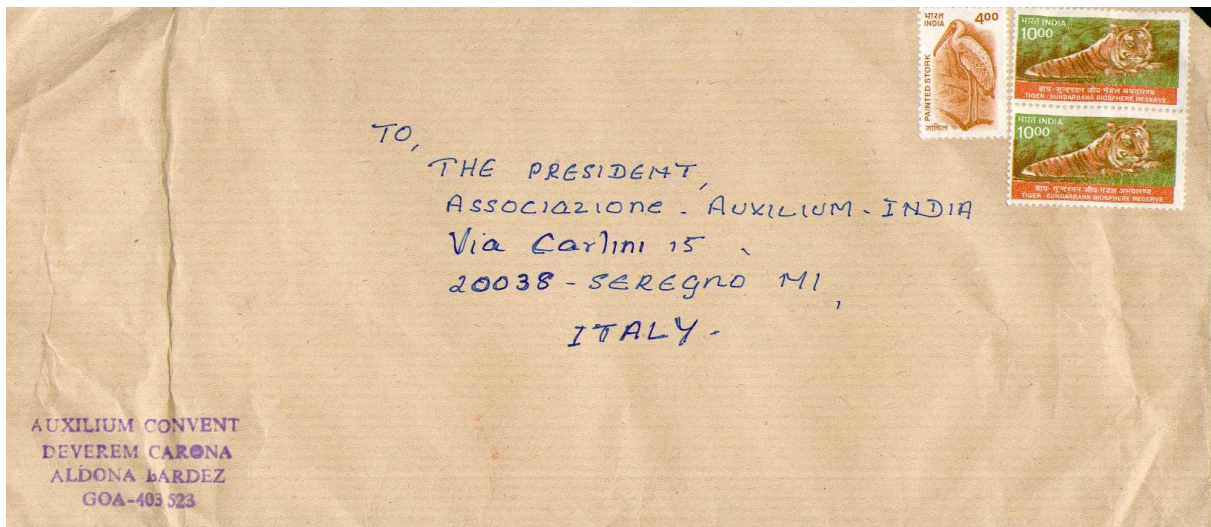 भारत INDIA
400
PAINTED STORK
जांघिल
भारत INDIA
1000
बाघ-सुन्दरबन जीव मंडल अभयारण्य
TIGER - SUNDARBANS BIOSPHERE RESERVE
भारत INDIA
1000
बाघ-सुन्दरबन जीव मंडल अभयारण्य
TIGER - SUNDARBANS BIOSPHERE RESERVE
TO,
THE PRESIDENT,
Associazione - AUXILIUM - INDIA
Via Carlini 15,
20038 - SEREGNO MI,
ITALY.
AUXILIUM CONVENT
DEVEREM CARONA
ALDONA BARDEZ
GOA-403 523